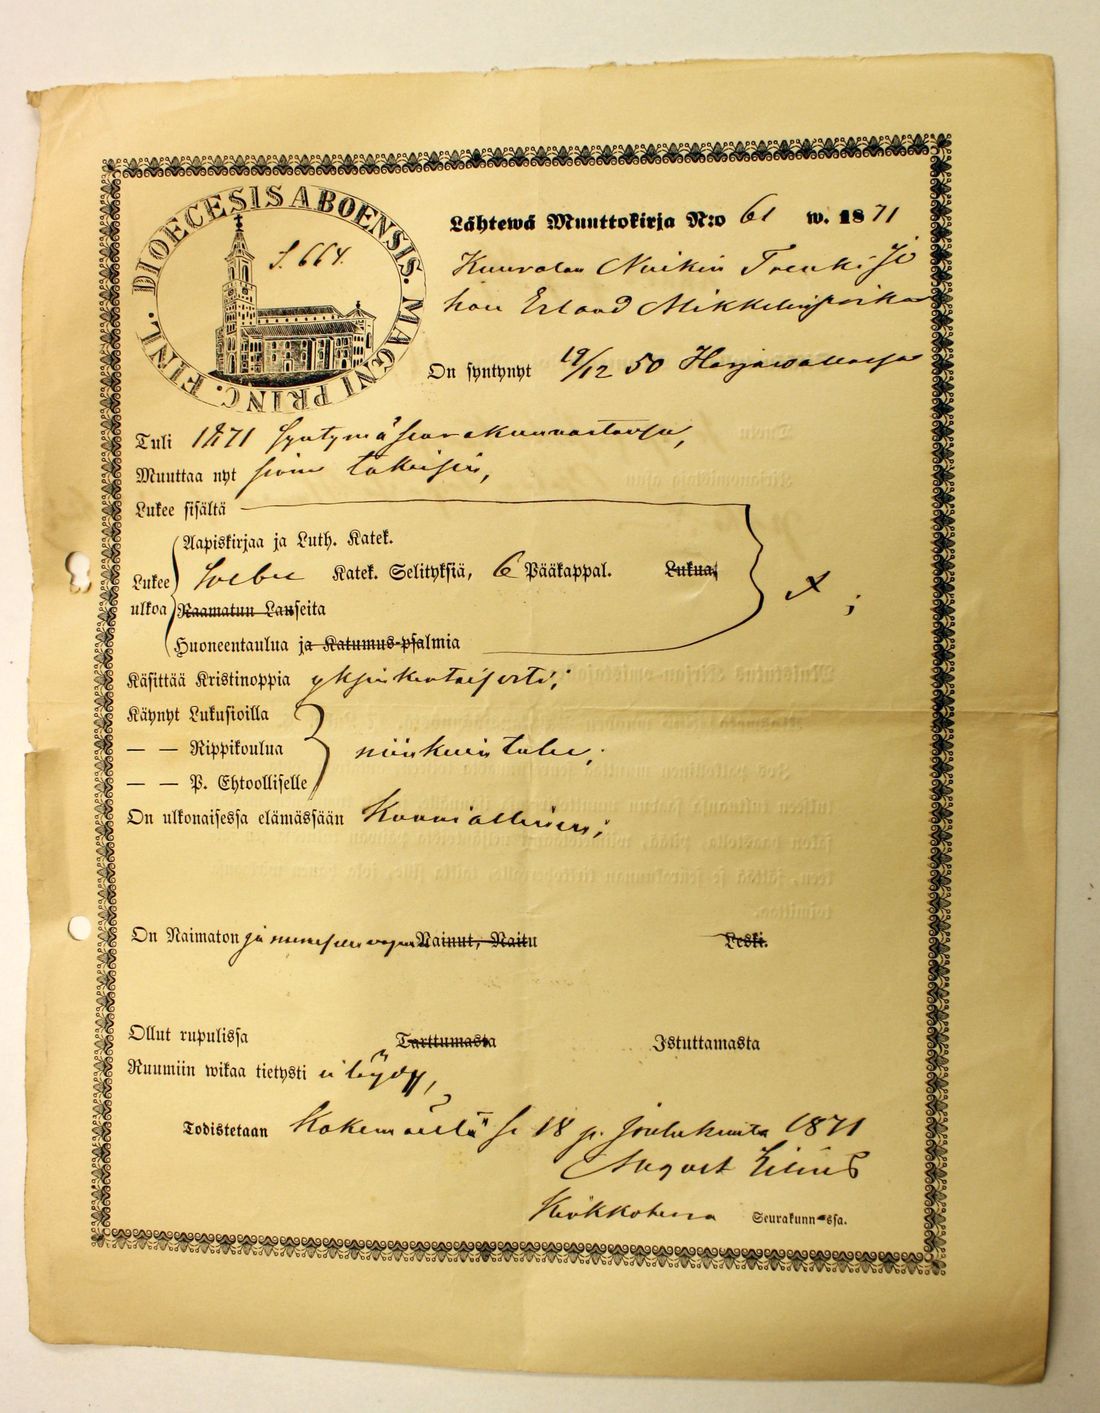 DIOECESIS ABOENSIS. MAGNI PRINC. FINL.
S. 664.
Lähtewä Muuttokirja N:o 61 w. 1871
Kuurolan Nuikin Trenki Jo
han Erland Mikkelinpoika
On syntynyt 19/12 50 Harjawallassa
Tuli 1871 syntymäseurakunnastansa,
Muuttaa nyt sinne takaisin,
Lukee sisältä
Aapiskirjaa ja Luth. Katek.
Lukee Katek. Selityksiä, 6 Pääkappal. Lukua,
ulkoa Raamatun Lauseita
Huoneentaulua ja Katumus-psalmia
Käsittää Kristinoppia yksinkertaisesti;
Käynyt Lukusioilla
— — Rippikoulua niinkuin tulee;
— — P. Ehtoolliselle
On ulkonaisessa elämässään
On Naimaton ja Nainut, Naitu Leski.
Ollut rupulissa Tarttumasta Istuttamasta
Ruumiin wikaa tietysti ei löydy,
Todistetaan Kokemäellä se 18 p. Joulukuuta 1871
August
Kirkkoherra Seurakunnassa.